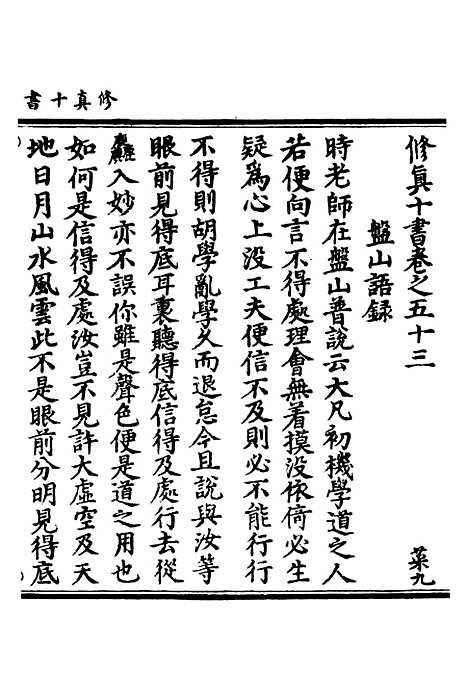 修真十書
修真十書卷之五十三
菜九
盤山語録
時老師在盤山普說云大凡初機學道之人
若便向言不得處理會無着摸没依倚必生
疑爲心上没工夫便信不及則必不能行行
不得則胡學亂學久而退怠今且說與汝等
眼前見得底耳裏聽得底信得及處行去從
麁入妙亦不誤你雖是聲色便是道之用也
如何是信得及處汝豈不見許大虛空及天
地日月山水風雲此不是眼前分明見得底